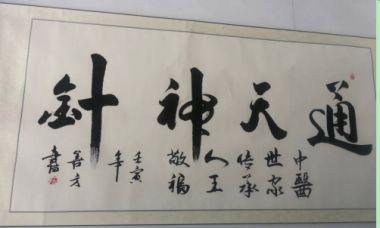 通天神針
中醫
世家
传承
人王
敬福
壬寅
年
善才
書